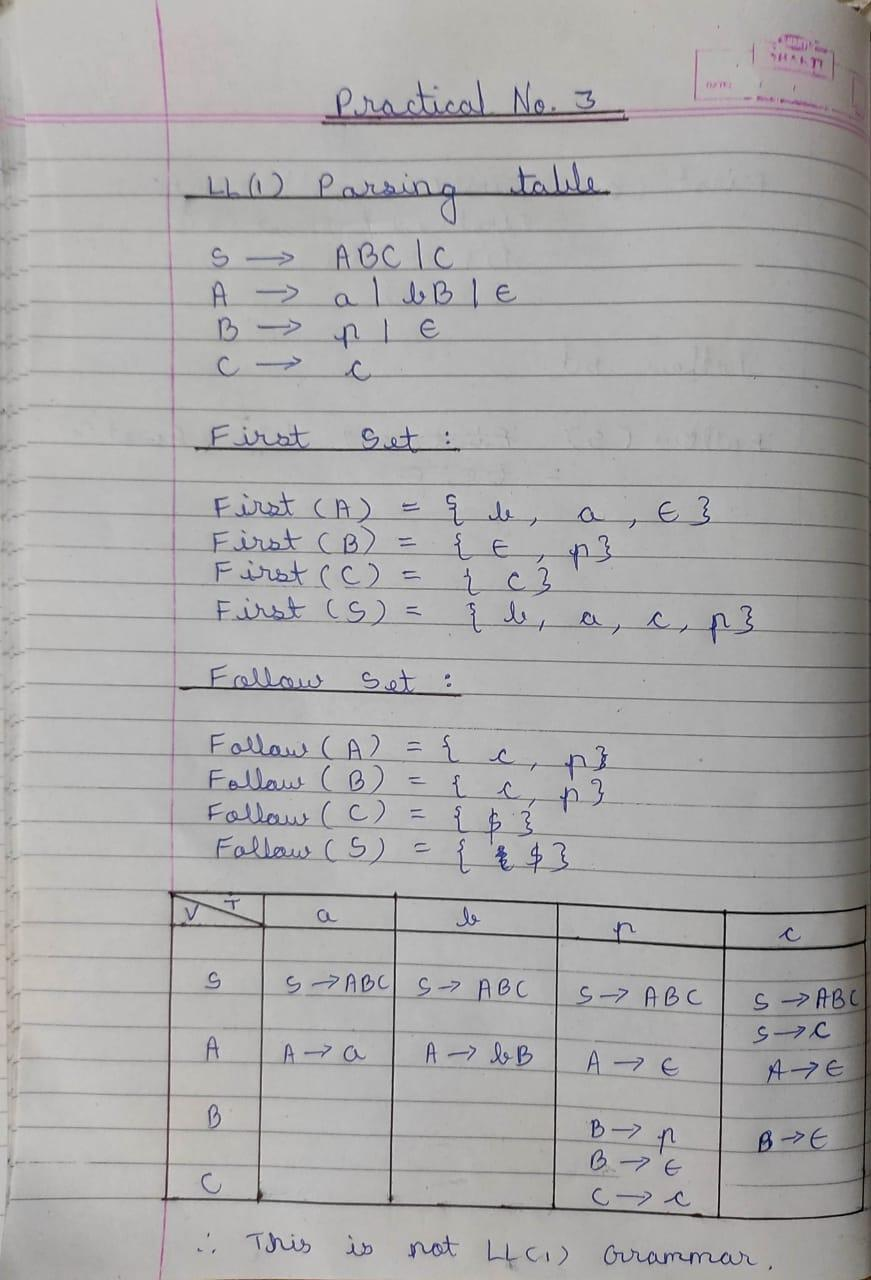 Practical No. 3
LL(1) Parsing table
S → ABC | C
A → a | bB | ε
B → p | ε
C → c
First Set :
First (A) = { b, a, ε }
First (B) = { ε, p }
First (C) = { c }
First (S) = { b, a, c, p }
Follow Set :
Follow (A) = { c, p }
Follow (B) = { c, p }
Follow (C) = { $ }
Follow (S) = { $ }
V T a b p c
S S → ABC S → ABC S → ABC S → ABC
S → C
A A → a A → bB A → ε A → ε
B B → p B → ε
B → ε
C C → c
∴ This is not LL(1) Grammar.